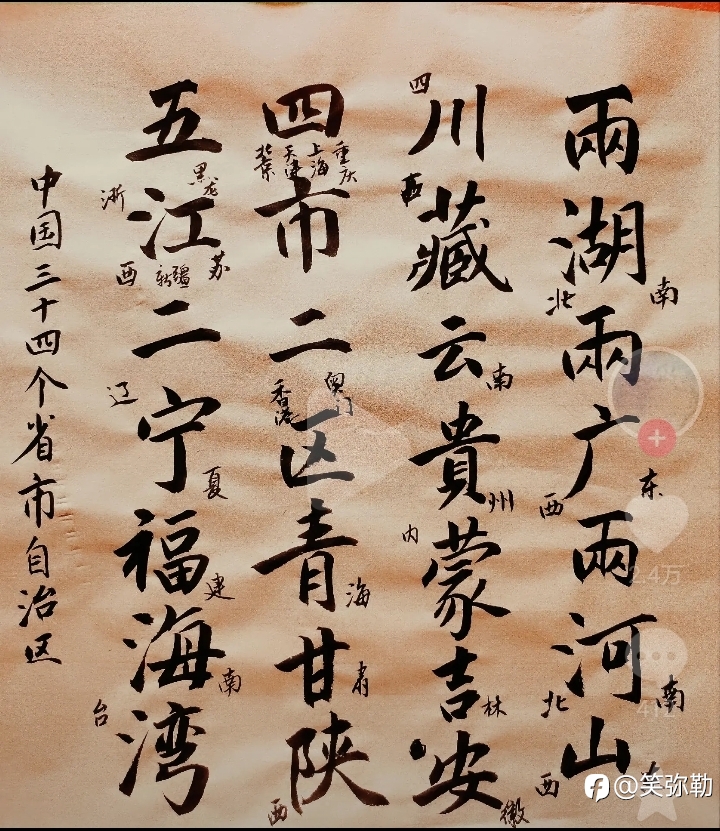 兩湖兩广兩河山
北
南
西
东
北
南
西
川藏云貴蒙吉安
四
西
南
州
内
林
徽
四市二区青甘陕
北京
天津
上海
重庆
香港
澳门
海
肃
西
五江二宁福海湾
黑龙
浙
苏
西
新疆
辽
夏
建
南
台
中国三十四个省市自治区
2.4万
@笑弥勒